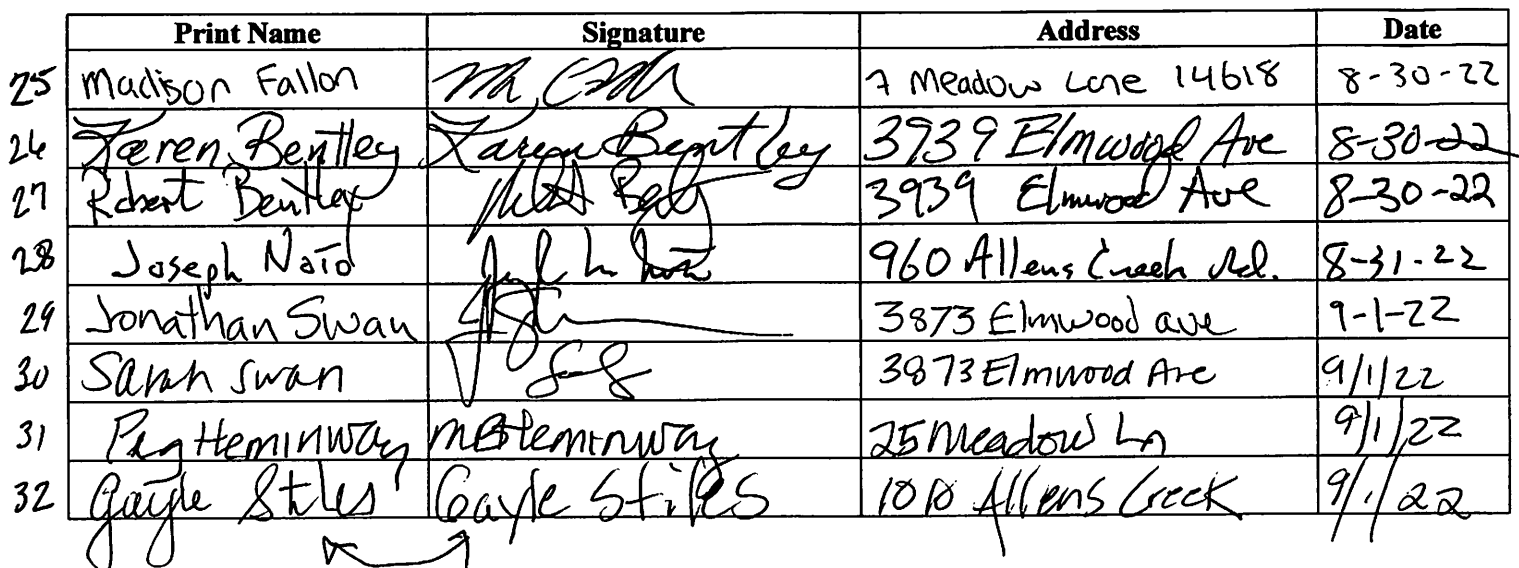 Print Name Signature Address Date
25 Madison Fallon 7 Meadow Lane 14618 8-30-22
26 Karen Bentley Karen Bentley 3939 Elmwood Ave 8-30-22
27 Robert Bentley 3939 Elmwood Ave 8-30-22
28 Joseph 960 Allens Creek Rd. 8-31-22
29 Jonathan Swan 3873 Elmwood ave 9-1-22
30 Sarah Swan 3873 Elmwood Ave 9/1/22
31 Peg Heminway MB Heminway 25 Meadow Ln 9/1/22
32 Gayle Stiles Gayle Stiles 1010 Allens Creek 9/1/22